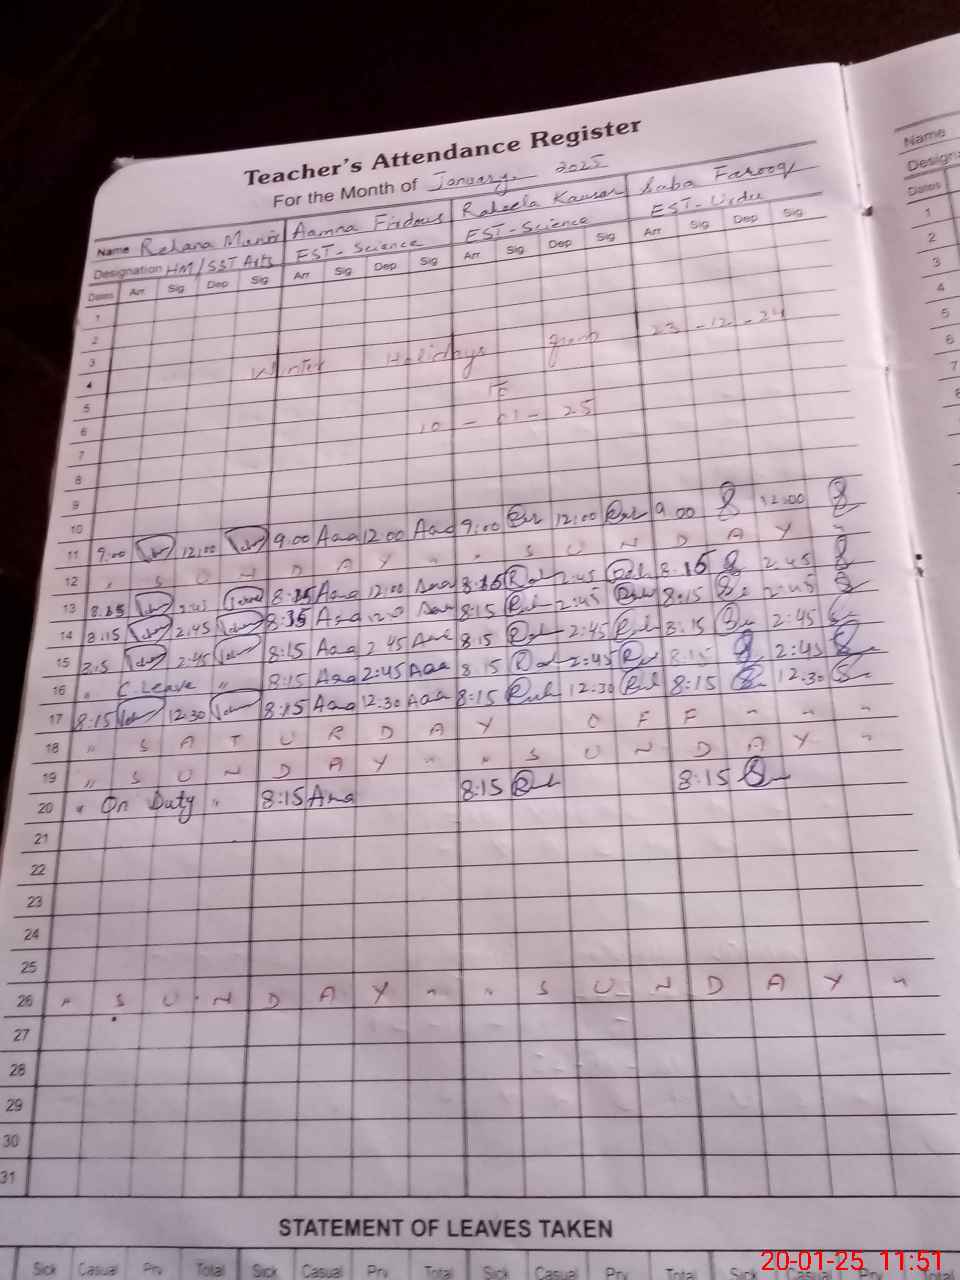 Teacher's Attendance Register
For the Month of January 2025
Name Rehana Munir Aamna Firdous Raheela Kausar Saba Farooq
Designation HM/SST Arts EST-Science EST-Science EST-Urdu
Dates Arr Sig Dep Sig Arr Sig Dep Sig Arr Sig Dep Sig Arr Sig Dep Sig
1
2
3 Winter Holidays from 23-12-24
4 To
5 10-01-25
6
7
8
9
10
11 9:00 12:00 9:00 Aaa 12:00 Aaa 9:00 12:00 9:00 12:00
12 " S U N D A Y " " S U N D A Y "
13 8:15 2:45 8:15 Aaa 12:00 Aaa 8:15 2:45 8:15 2:45
14 8:15 2:45 8:15 Aaa 8:15 2:45 8:15 2:45
15 8:15 2:45 8:15 Aaa 2:45 Aaa 8:15 2:45 8:15 2:45
16 " C.Leave " 8:15 Aaa 2:45 Aaa 8:15 2:45 8:15 2:45
17 8:15 12:30 8:15 Aaa 12:30 Aaa 8:15 12:30 8:15 12:30
18 " S A T U R D A Y O F F " " "
19 " S U N D A Y " " S U N D A Y "
20 " On Duty " 8:15 Aaa 8:15 8:15
21
22
23
24
25
26 " S U N D A Y " " S U N D A Y "
27
28
29
30
31
STATEMENT OF LEAVES TAKEN
Sick Casual Prv Total Sick Casual Prv Total Sick Casual Prv Total Sick Casual Prv Total
Name
Dates
1
2
3
4
5
6
7
8
20-01-25 11:51